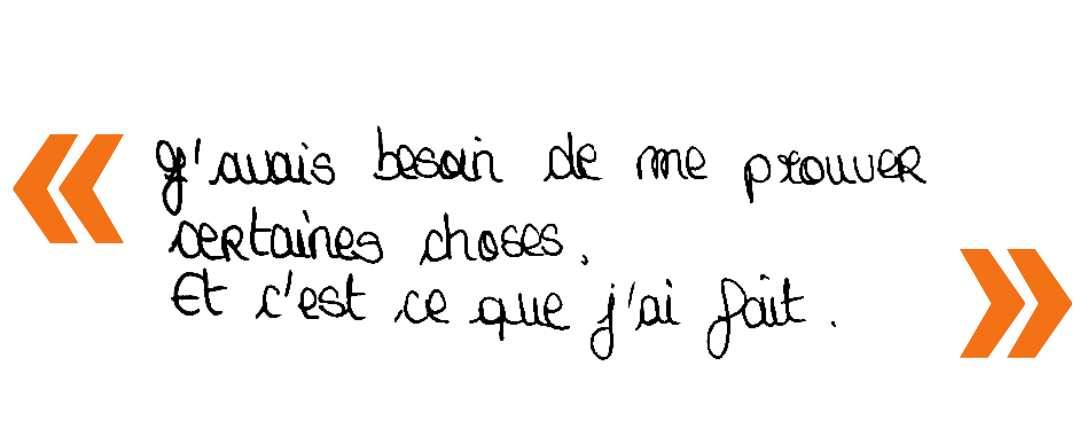 « J'avais besoin de me prouver
certaines choses,
Et c'est ce que j'ai fait. »